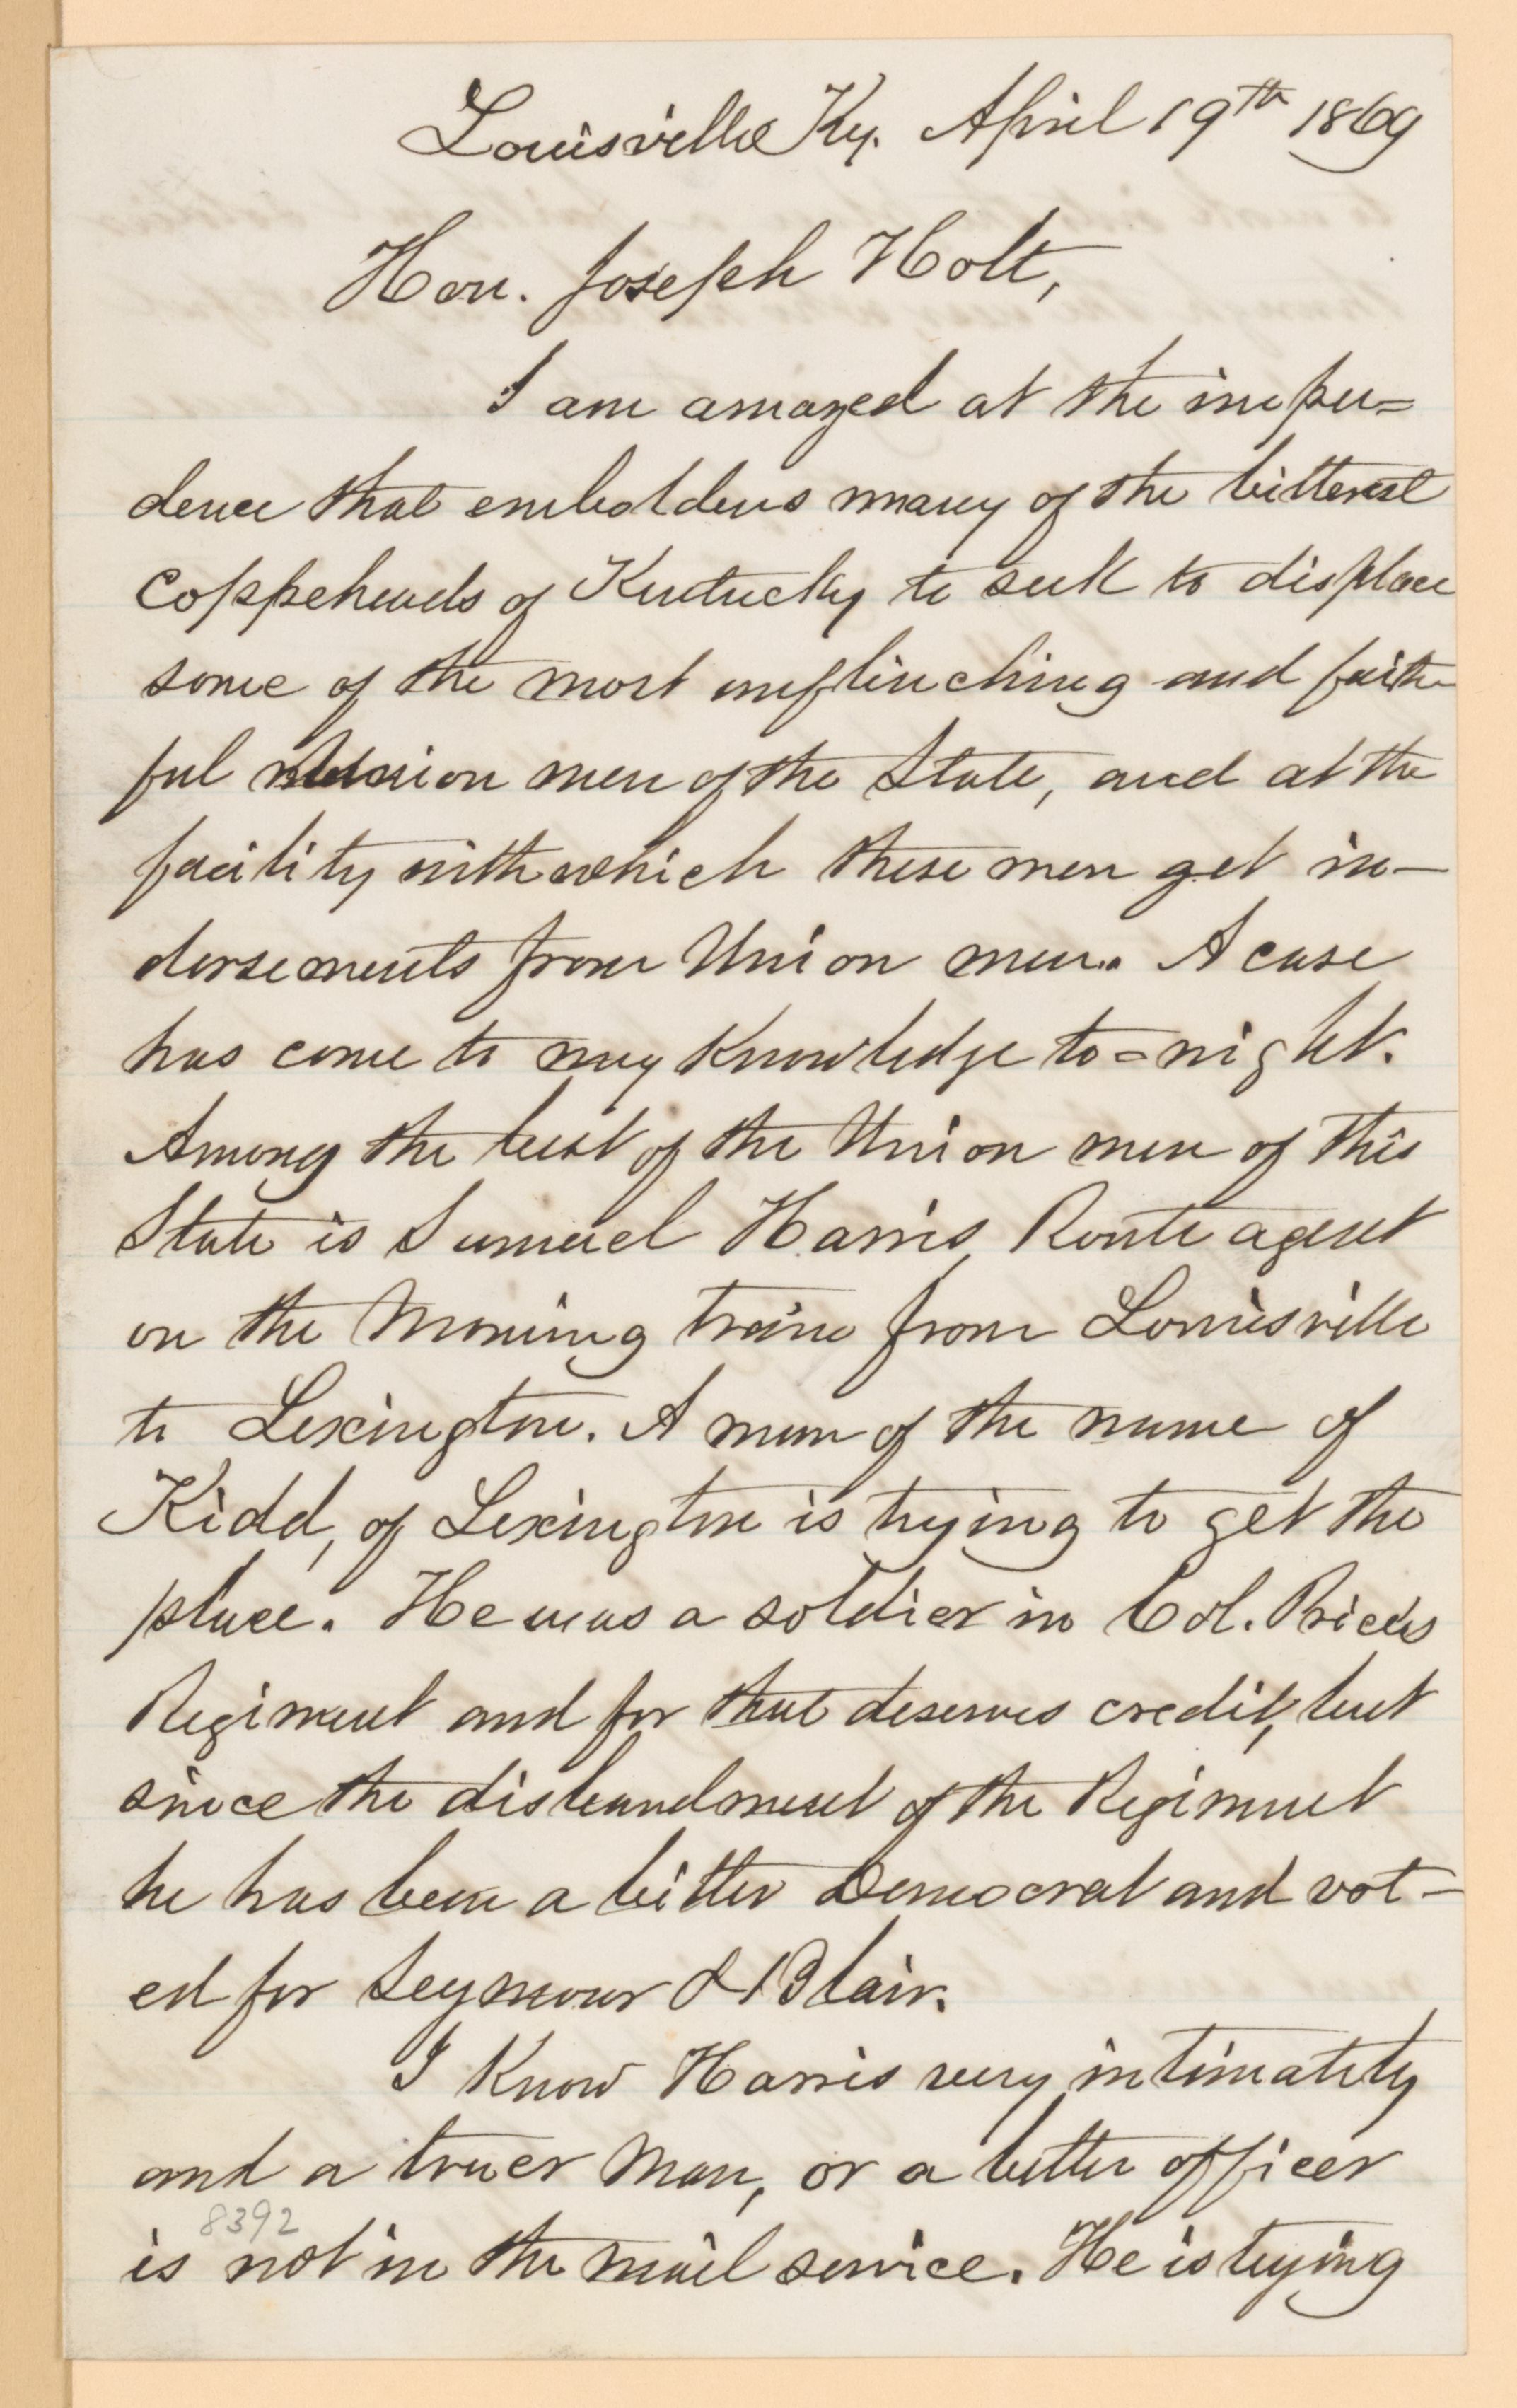 Louisville Ky. April 19th 1869
Hon. Joseph Holt,
I am amazed at the impu=
dence that emboldens many of the bitterest
Coppeheads of Kentucky to seek to displace
some of the most unflinching and faith-
ful Union men of the State, and at the
facility with which these men get in-
dorsements from Union men. A case
has come to my knowledge to=night.
Among the best of the Union men of this
State is Samuel Harris, Route agent
on the Morning train from Louisville
to Lexington. A man of the name of
Kidd, of Lexington is trying to get the
place. He was a soldier in Col. Price's
Regiment and for that deserves credit, but
since the disbandment of the Regiment
he has been a bitter Democrat and vot-
ed for Seymour & Blair.
I know Harris very intimately
and a truer man, or a better officer
8392
is not in the mail service. He is trying